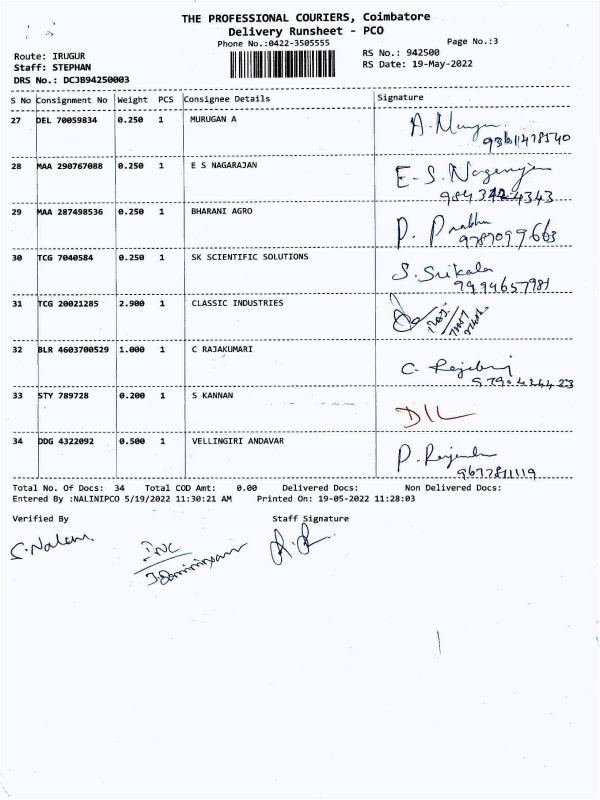 THE PROFESSIONAL COURIERS, Coimbatore
Delivery Runsheet - PCO
Phone No.:0422-3505555
Page No.:3
Route: IRUGUR
RS No.: 942500
Staff: STEPHAN
RS Date: 19-May-2022
DRS No.: DCJB94250003
S No Consignment No Weight PCS Consignee Details Signature
27 DEL 70059834 0.250 1 MURUGAN A A.
28 MAA 290767088 0.250 1 E S NAGARAJAN E-S.
29 MAA 287498536 0.250 1 BHARANI AGRO P. Prabhu
9787099663
30 TCG 7040584 0.250 1 SK SCIENTIFIC SOLUTIONS S. Srikala
9994657981
31 TCG 20021285 2.900 1 CLASSIC INDUSTRIES
32 BLR 4603700529 1.000 1 C RAJAKUMARI C.
33 STY 789728 0.200 1 S KANNAN DIL
34 DDG 4322092 0.500 1 VELLINGIRI ANDAVAR P.
Total No. Of Docs: 34 Total COD Amt: 0.00 Delivered Docs: Non Delivered Docs:
Entered By :NALINIPCO 5/19/2022 11:30:21 AM Printed On: 19-05-2022 11:28:03
Verified By Staff Signature